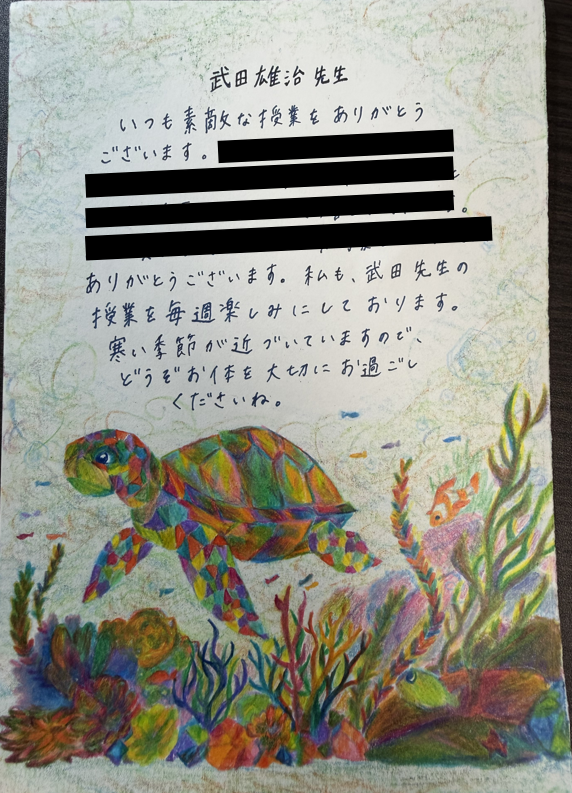 武田雄治先生
いつも素敵な授業をありがとう
ございます。
ありがとうございます。私も、武田先生の
授業を毎週楽しみにしております。
寒い季節が近づいていますので、
どうぞお体を大切にお過ごし
くださいね。